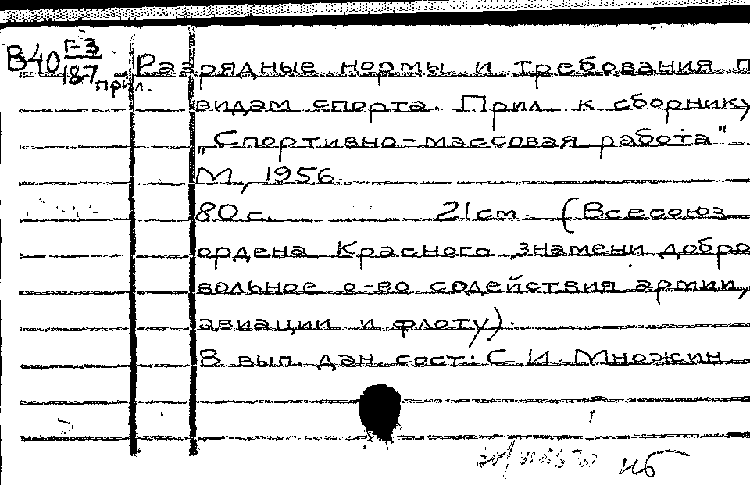 В40 Г-3
187 прил.
Разрядные нормы и требования п
видам спорта. Прил. к сборнику
"Спортивно-массовая работа"
М., 1956.
80 с. 21 см. (Всесоюз
ордена Красного знамени добро
вольное о-во содействия армии,
авиации и флоту).
В вып. дан. сост.: С. И. Множин.
нб